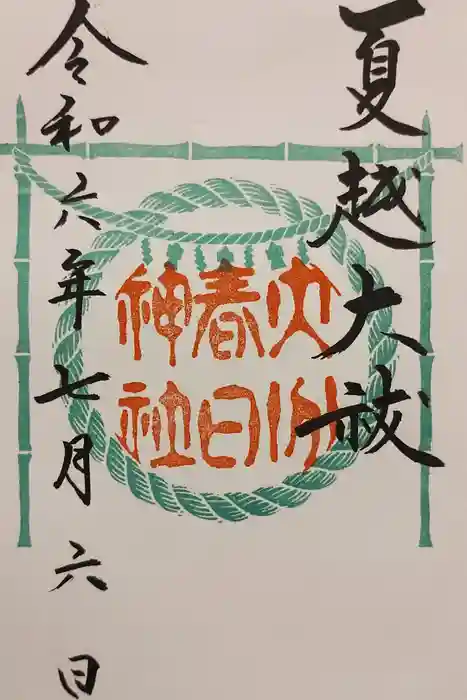 夏越大祓
春日
神社
令和六年七月六日